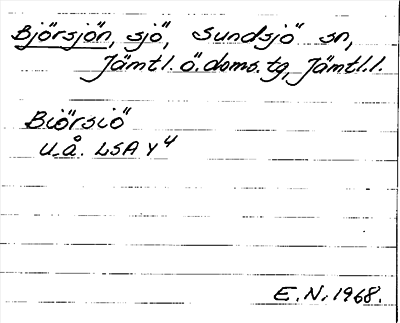 Björsjön, sjö, Sundsjö sn,
Jämtl. ö. doms. tg, Jämtl.l.
Biörsiö
u.å. LSA Y 4
E.N. 1968.